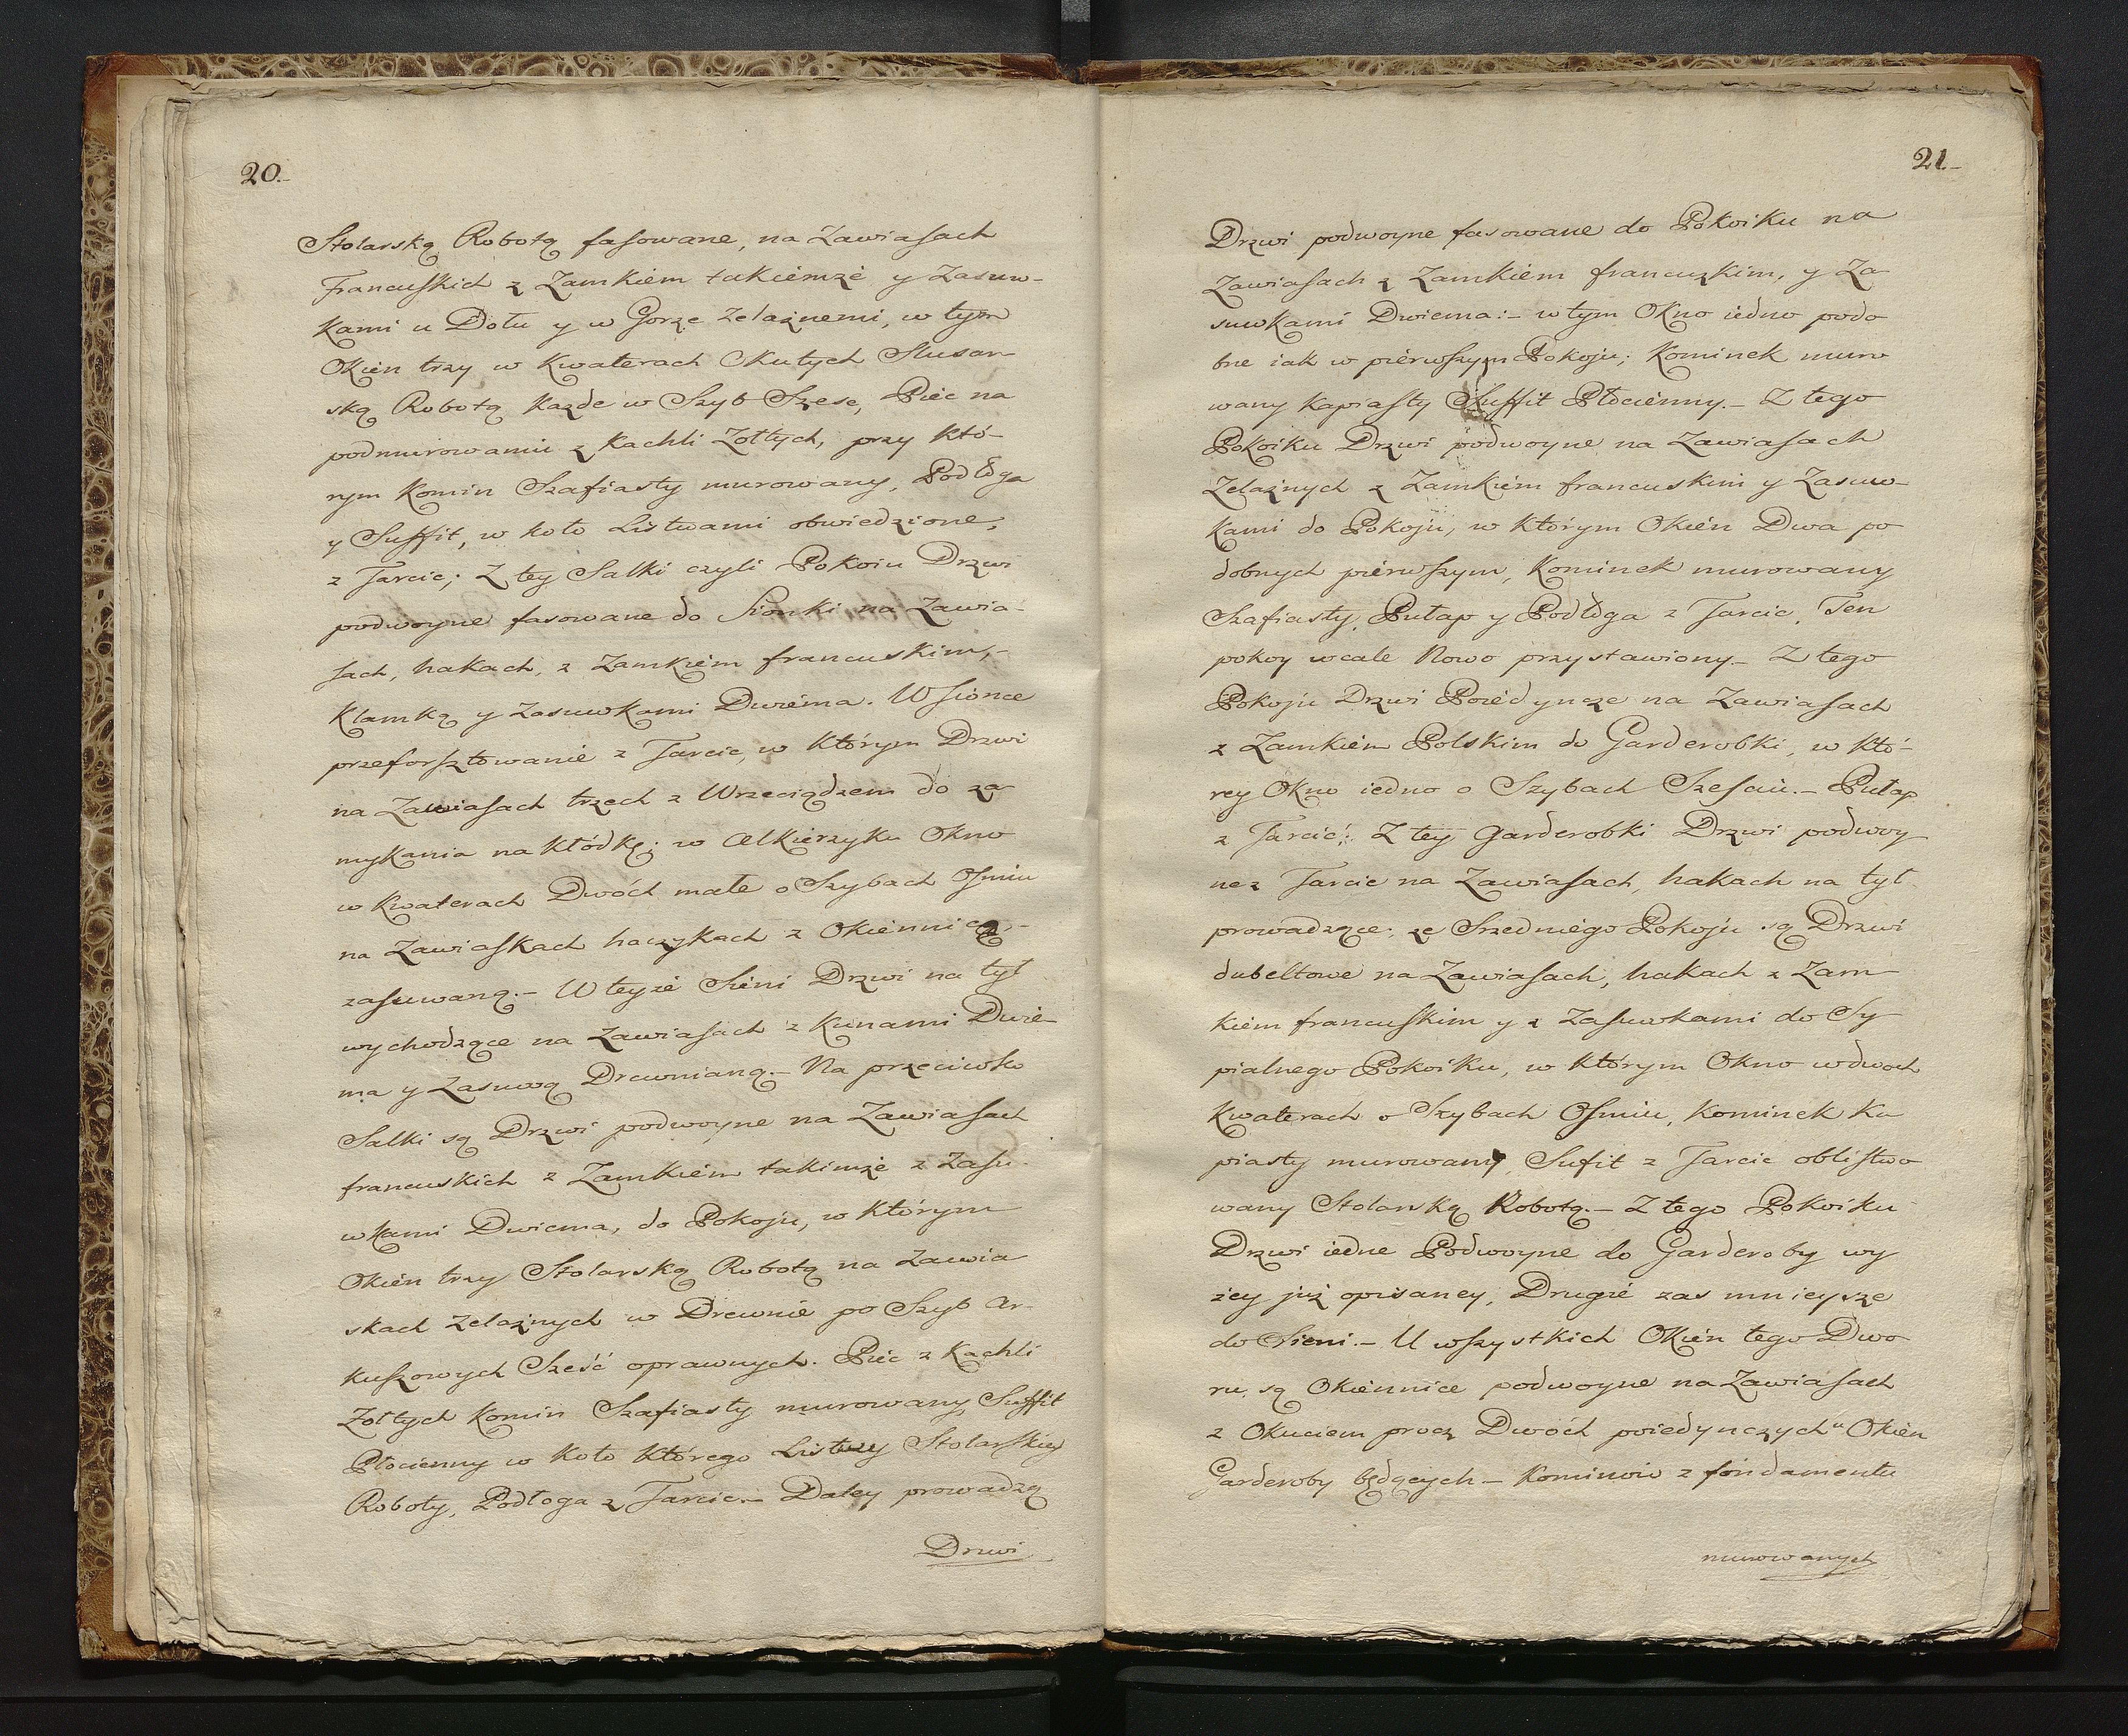 20.
Stolarską Robotą fasowane, na Zawiasach
Francuskich z Zamkiem takiemże y Zasuw-
kami u Dołu y w Gorze Zelaznemi, w tym
Okien trzy w Kwaterach Okutych Slusar-
ską Robotą Kazde w Szyb Szesc, Piec na
podmurowaniu z Kachli Zołtych, przy któ-
rym Komin Szafiasty murowany, Podłoga
y Suffit, w koło Listwami obwiedzione,
z Tarcic; Z tey Salki czyli Pokoiu Drzwi
podwoyne fasowane do Sionki na Zawia-
sach, hakach, z Zamkiem francuskim,-
Klamką y Zasuwkami Dwiéma. W sionce
przeforsztowanie z Tarcic, w którym Drzwi
na Zawiasach trzech z Wrzeciądzem do za
mykania na Kłódkę; w Alkierzyku Okno
w Kwaterach Dwóch małe o Szybach Osmiu
na Zawiaskach haczykach z Okiennicą,-
zasuwaną.- W teyże Sieni Drzwi na tył
wychodzące na Zawiasach z Kunami Dwie-
ma y Zasuwą Drewnianą.- Na przeciwko
Salki są Drzwi podwoyne na Zawiasach
francuskich z Zamkiem takimże z Zasu-
wkami Dwiema, do Pokoju, w którym
Okien trzy Stolarską Robotą na Zawia
skach Zelaznych w Drewnie po Szyb Ar-
kuszowych Sześć oprawnych. Piec z Kachli
Zołtych Komin Szafiasty murowany, Suffit
Płocienny w Koło Którego Listwy Stolarskiey
Roboty, Podłoga z Tarcic.- Daley prowadzą
Drzwi
21.
Drzwi podwoyne fasowane do Pokoiku na
Zawiasach z Zamkiem francuzkim, y Za
suwkami Dwiema:- w tym Okno iedno podo
bne iak w piérwszym Pokoju; Kominek muro
wany Kapiasty Suffit Płócienny.- Z tego
Pokoiku Drzwi podwoyne na Zawiasach
Zelaznych z Zamkiem francuskim y Zasuw-
kami do Pokoju, w którym Okien Dwa po
dobnych piérwszym, Kominek murowany
Szafiasty, Pułap y Podłoga z Tarcic, Ten
pokoy wcale Nowo przystawiony.- Z tego
Pokoju Drzwi Poiédyncze na Zawiasach
z Zamkiem Polskim do Garderobki, w któ-
rey Okno iedno o Szybach Szesciu.- Pułap
z Tarcic; Z tey Garderobki Drzwi podwoy
ne z Tarcic na Zawiasach, hakach na tył
prowadzące; ze Srzedniego Pokoju są Drzwi
dubeltowe na Zawiasach, hakach z Zam-
kiem francuskim y z Zasuwkami do Sy
pialnego Pokoiku, w którym Okno w dwoch
Kwaterach o Szybach Osmiu, Kominek Ka
piasty murowany, Sufit z Tarcic oblistwo
wany Stolarską Robotą.- Z tego Pokoiku
Drzwi iedne Podwoyne do Garderoby wy
żey już opisaney, Drugie zas mnieysze
do Sieni.- U wszystkich Okien tego Dwo
ru, są Okiennice podwoyne na Zawiasach
z Okuciem procz Dwóch poiedynczych u Okien
Garderoby będących - Kominow z fundamentu
murowanych